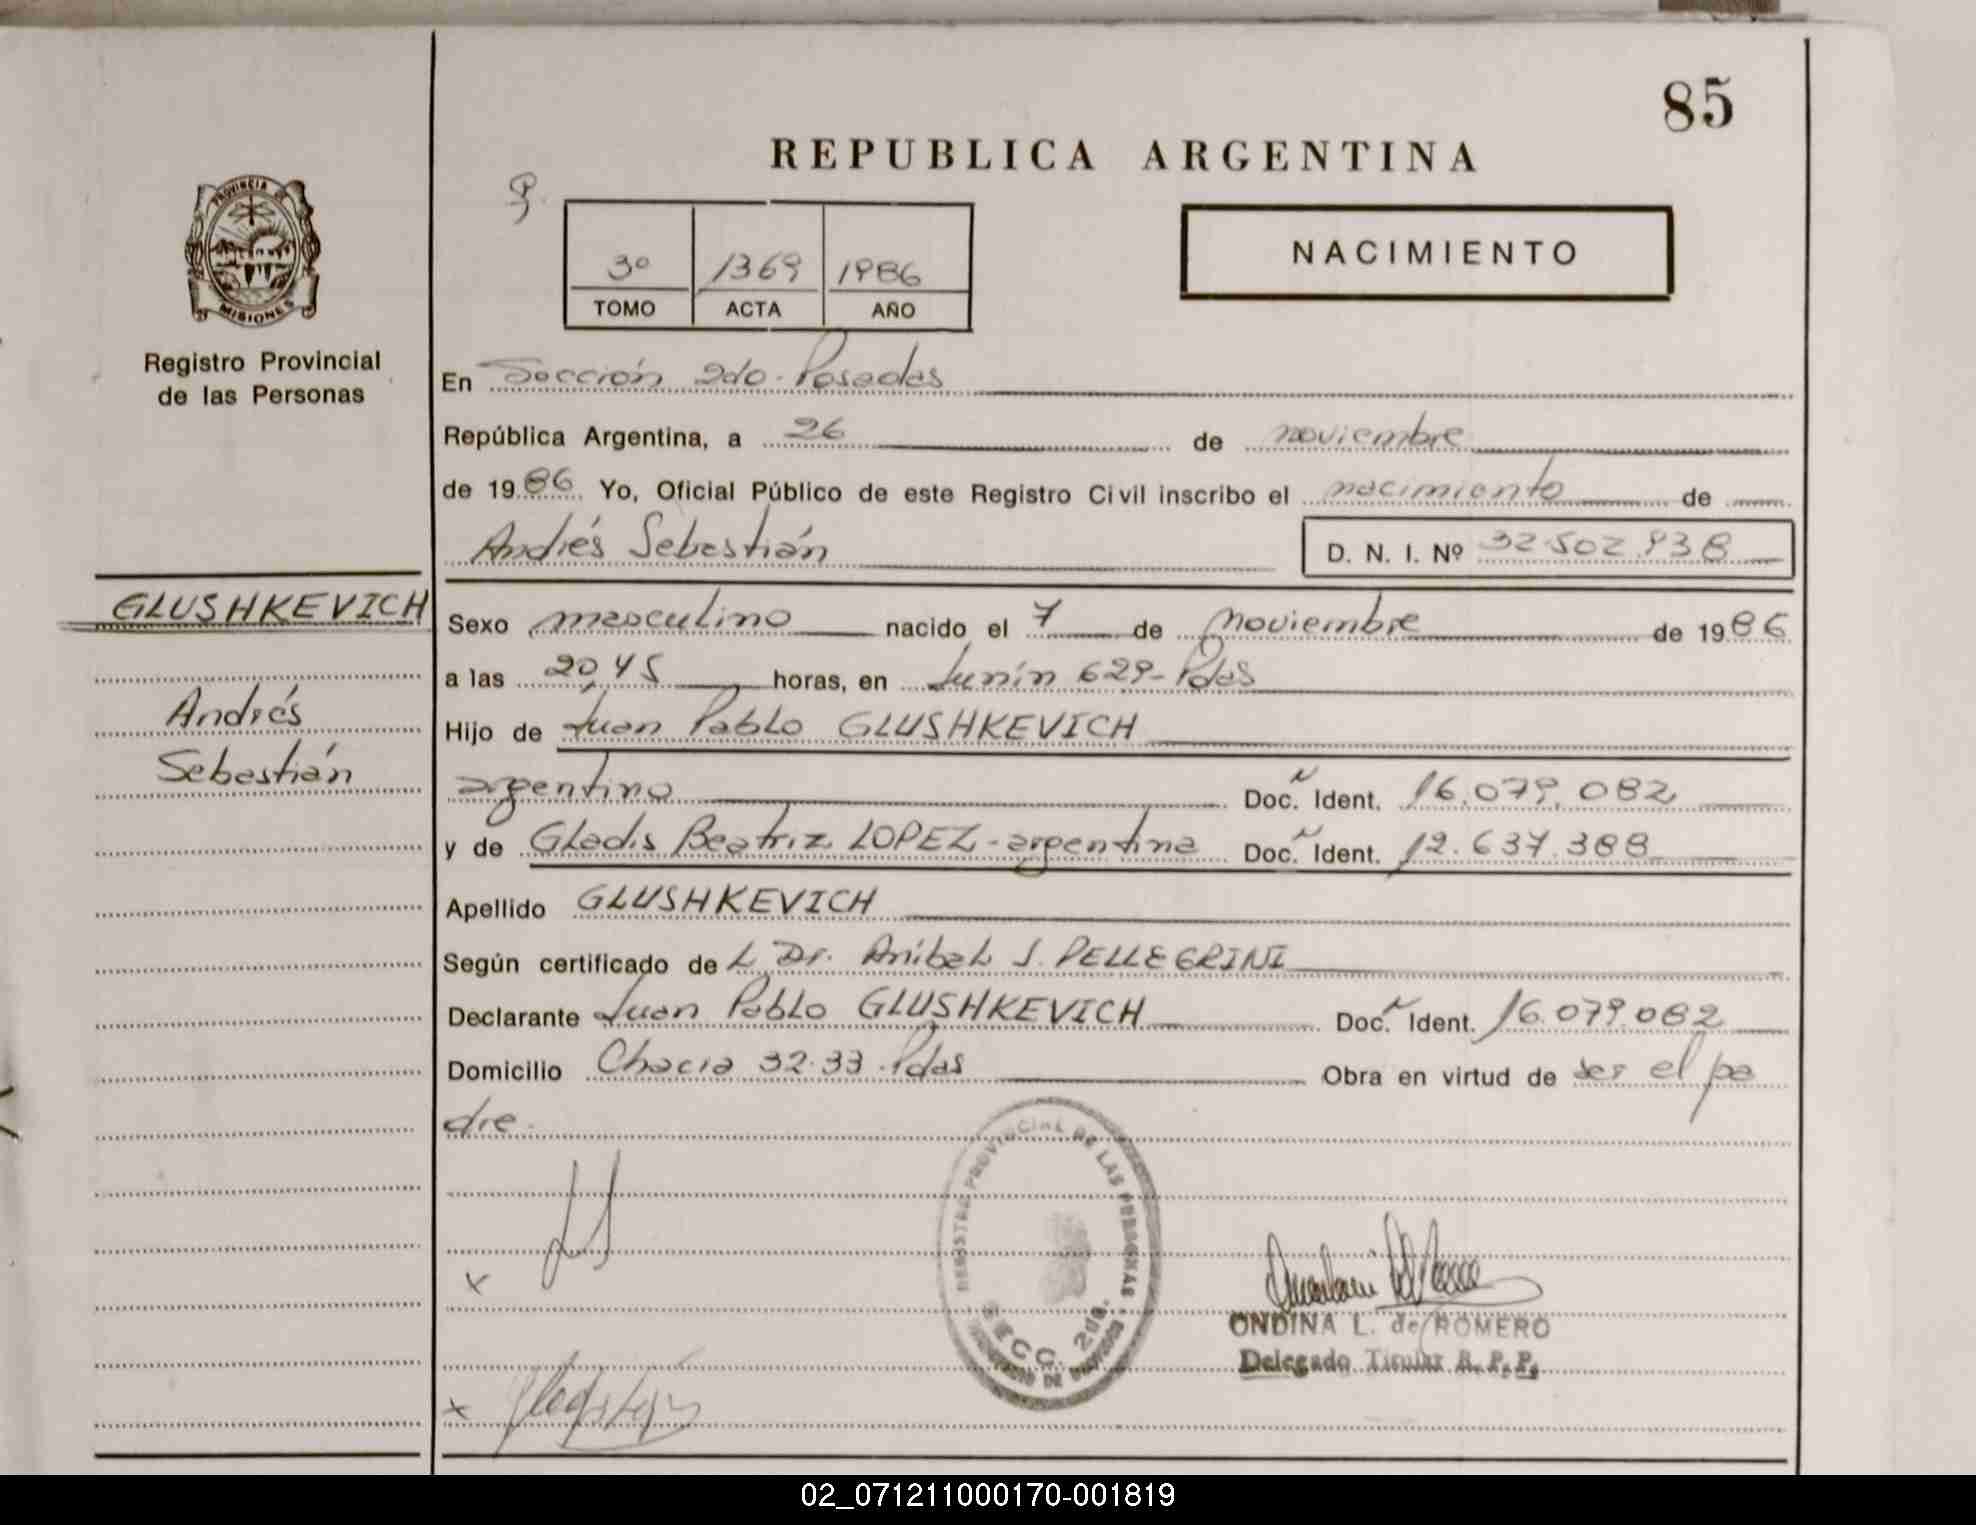 85
REPUBLICA ARGENTINA
PROVINCIA DE
MISIONES
Registro Provincial
de las Personas
3º 1369 1986
TOMO ACTA AÑO
NACIMIENTO
En Sección 2do. Posadas
República Argentina, a 26 de noviembre
de 1986 Yo, Oficial Público de este Registro Civil inscribo el nacimiento de
Andrés Sebestián
D. N. I. Nº 32.502.938
GLUSHKEVICH
Andrés
Sebastián
Sexo masculino nacido el 7 de noviembre de 1986
a las 20,45 horas, en Junín 629-Pdas
Hijo de Juan Pablo GLUSHKEVICH
argentino Doc. Ident. 16.079.082
y de Gladis Beatriz LOPEZ - argentina Doc. Ident. 12.637.388
Apellido GLUSHKEVICH
Según certificado de L Dr. Aníbal S. PELLEGRINI
Declarante Juan Pablo GLUSHKEVICH Doc. Ident. 16.079.082
Domicilio Chacra 32-33-Pdas Obra en virtud de ser el pa
dre.
REGISTRO PROVINCIAL DE LAS PERSONAS
SECC. 2da.
ONDINA L. de ROMERO
Delegado Titular R. P. P.
02_071211000170-001819